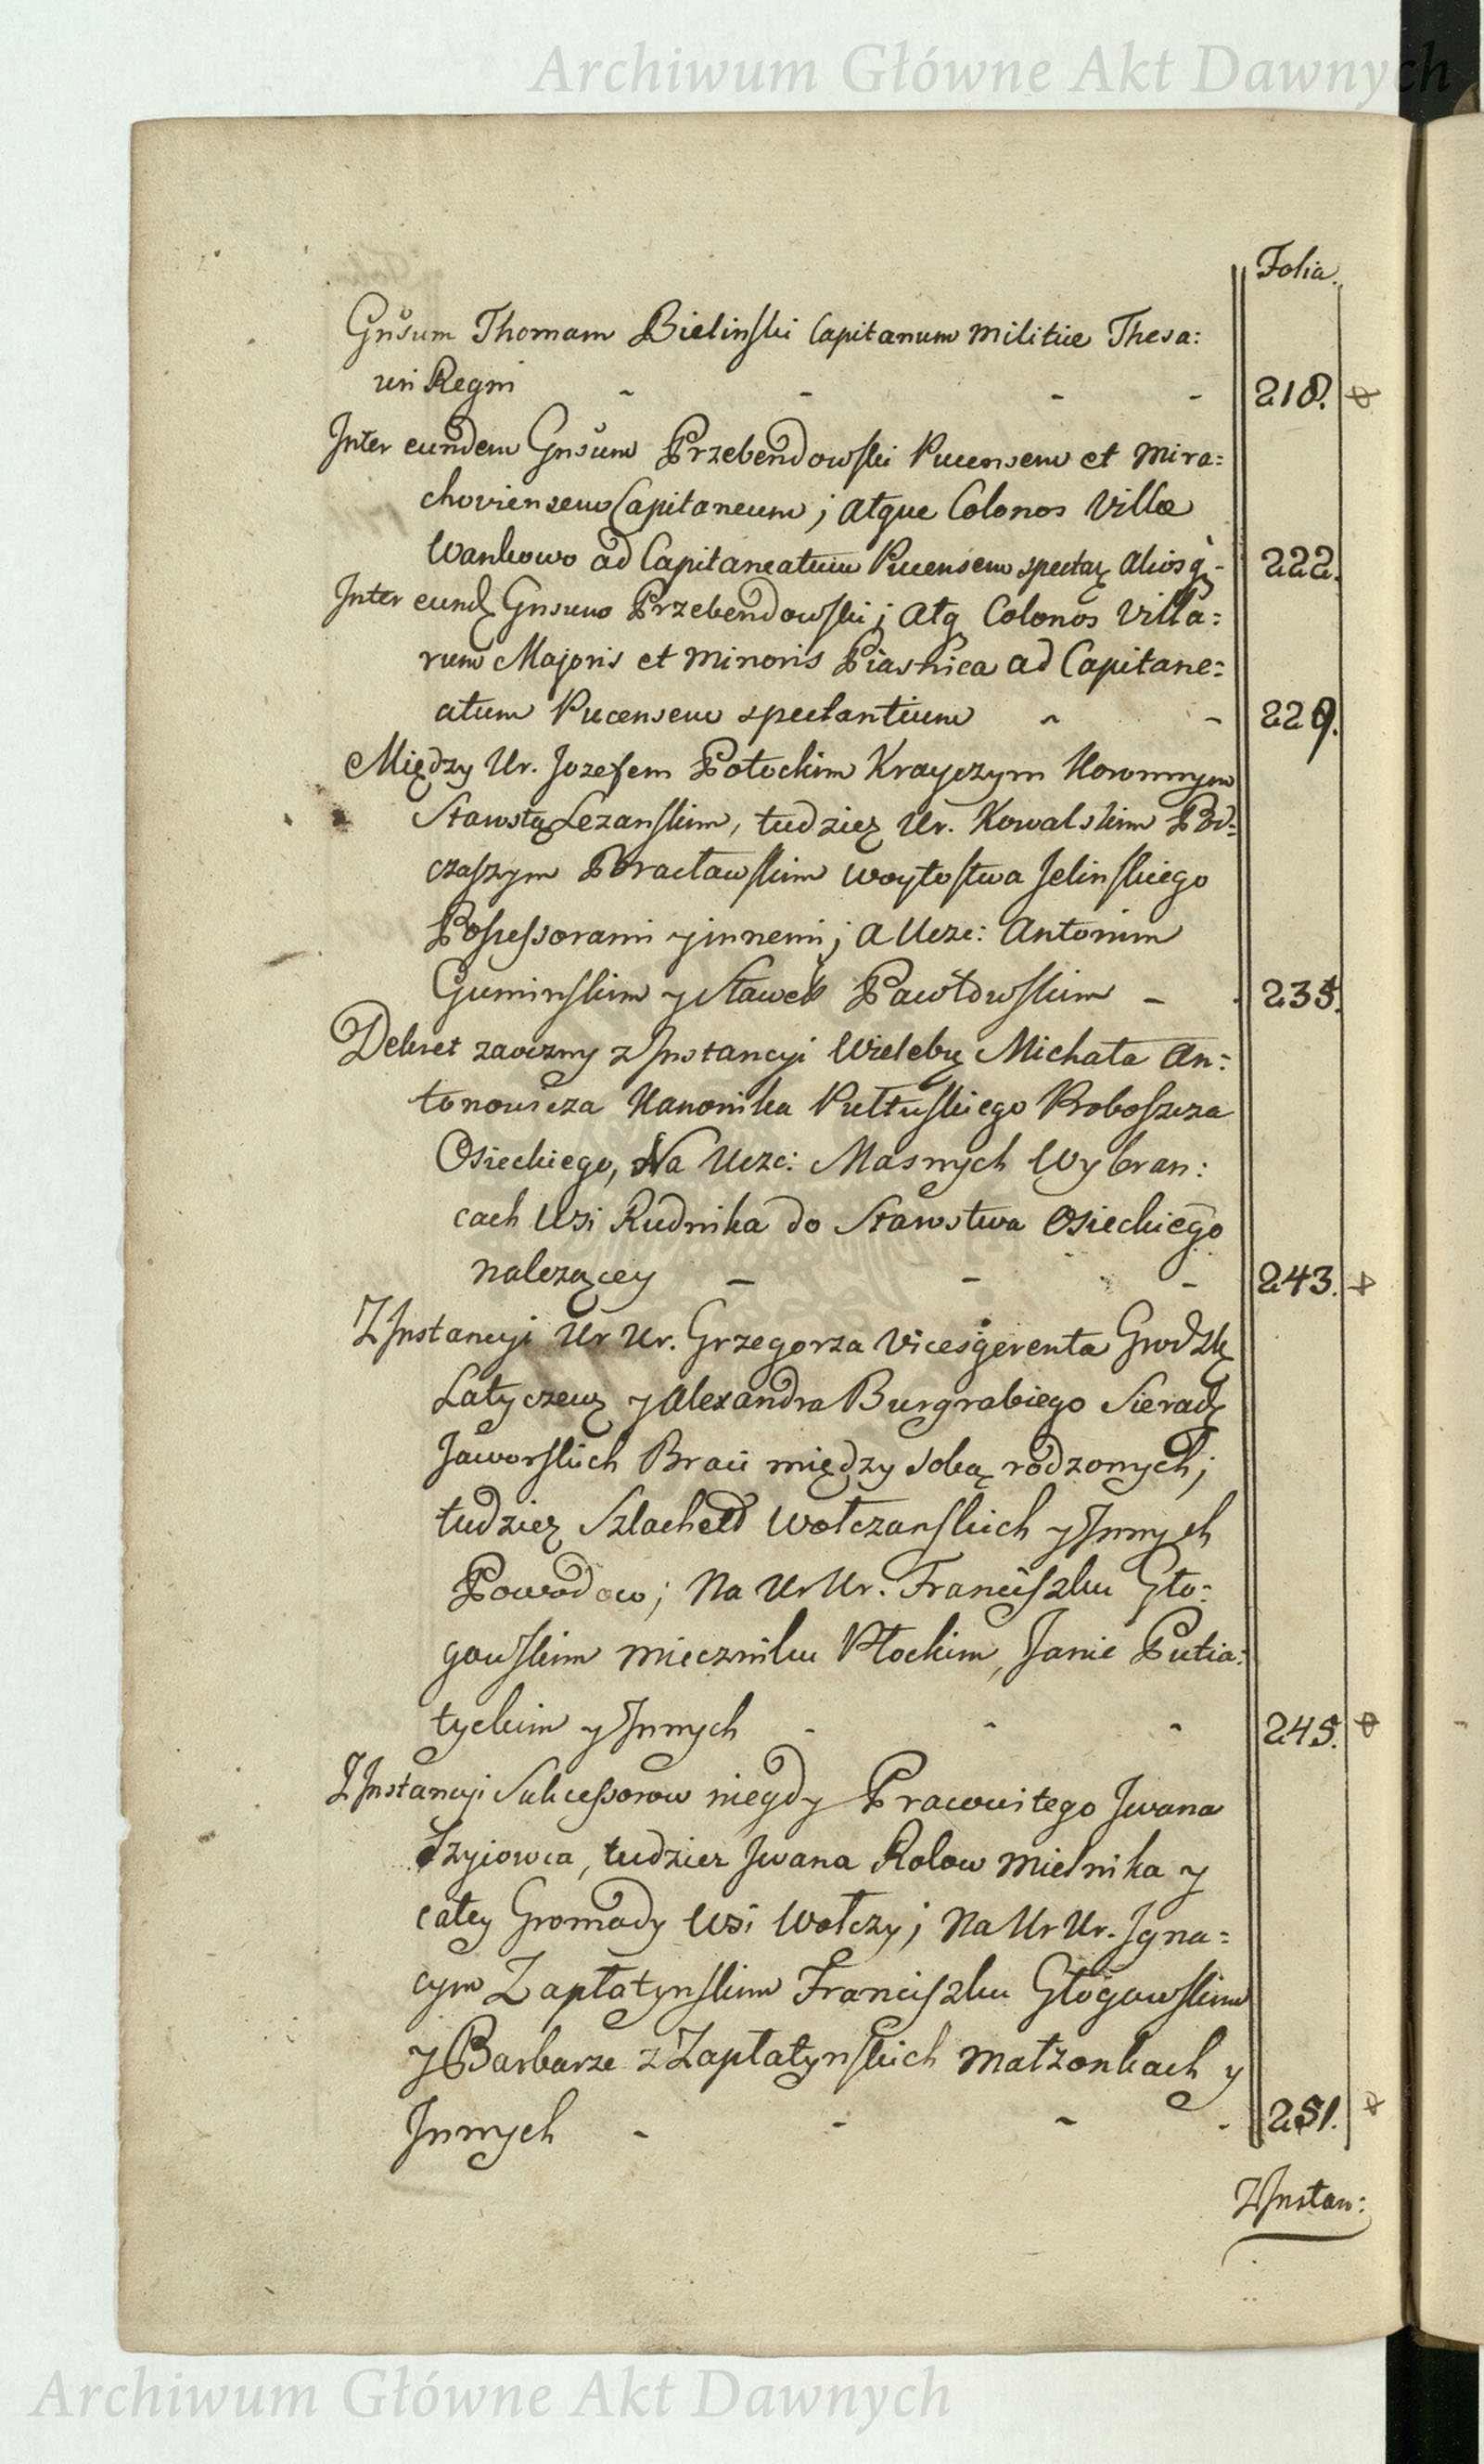 Archiwum Główne Akt Dawnych
Folia.
Gnsum Thomam Bielinski Capitanum Militiæ Thesa:
uri Regni - - - - 218.
Inter eundem Gnsum Przebendowski Pucensem et Mira=
choviensem Capitaneum; atque Colonos Villæ
Wankowo ad Capitaneatum Pucensem spectaȩ aliosq - 222.
Inter eundȩ Gnsum Przebendowski; atq Colonos Villa=
rum Majoris et Minoris Piasnica ad Capitane=
atum Pucensem spectantium - - 229.
Między Ur. Jozefem Potockim Krayczym Koronnym
Starostą Lezanskim, tudziez Ur. Kowalskim Pod=
czaszym Bracławskim Woytostwa Jelinskiego
Possessorami y innemi; a Ucze: Antonim
Guminskim y Sławek Pawłowskim - - 235.
Dekret zaoczny z Instancyi Wieleb Michała An=
tonowicza Kanonika Pułtuskiego Proboszcza
Osieckiego, Na Ucze: Masnych Wybran:
cach Wsi Rudnika do Starostwa Osieckiego
nalezącey - - - 243.
Z Instancyi Ur Ur. Grzegorza Vicesgerenta Grodzk
Latyczew y Alexandra Burgrabiego Sieradz
Jaworskich Braci między sobą rodzonych;
tudziez Szlachetd Wołczanskich y Innych
Powodow; Na Ur Ur. Franciszku Gło=
gowskim Mieczniku Płockim, Janie Putia=
tyckim y Innych - - - 245.
Z Instancyi Sukcessorow niegdy Pracowitego Jwana
Szyiowca, tudziez Jwana Rolow Mielnika y
całey Gromady Wsi Wołczy; Na Ur Ur. Jgna=
cym Zapłatynskim Franciszku Głogowskim
y Barbarze z Zapłatynskich Małzonkach y
Innych - - - - 251.
Z Instan:
Archiwum Główne Akt Dawnych